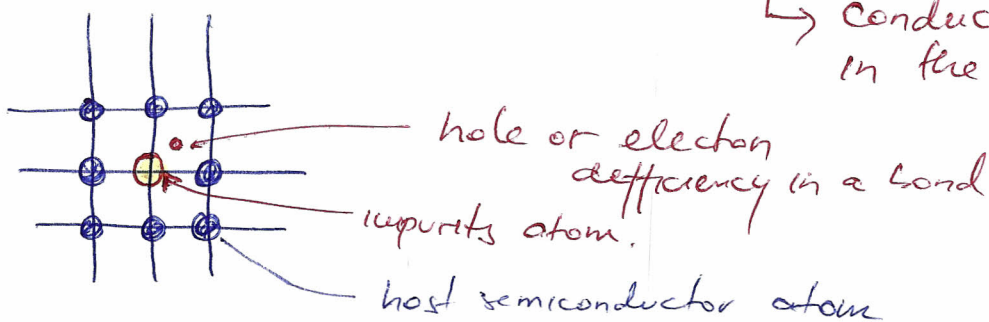 ↳ conduc
in the
hole or electron
defficiency in a bond
impurity atom.
host semiconductor atom